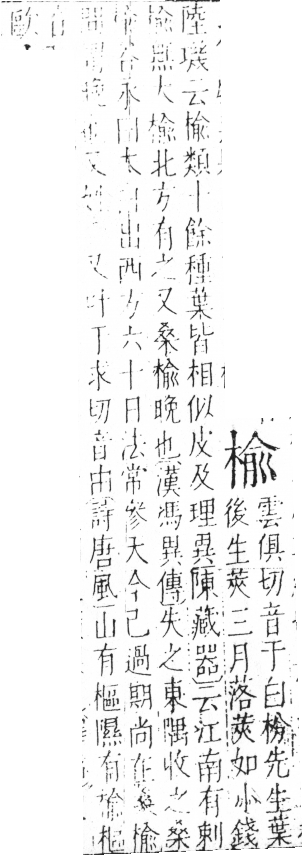 榆 雲俱切音于白枌先生葉
後生莢三月落莢如小錢
陸璣云榆類十餘種葉皆相似皮及理異陳藏器云江南有刺
榆無大榆北方有之又桑榆晚也漢馮異傳失之東隅收之桑
谷永曰太白出西方六十日法常參天今已過期尚在桑榆
又叶于求切音由詩唐風山有樞隰有榆樞